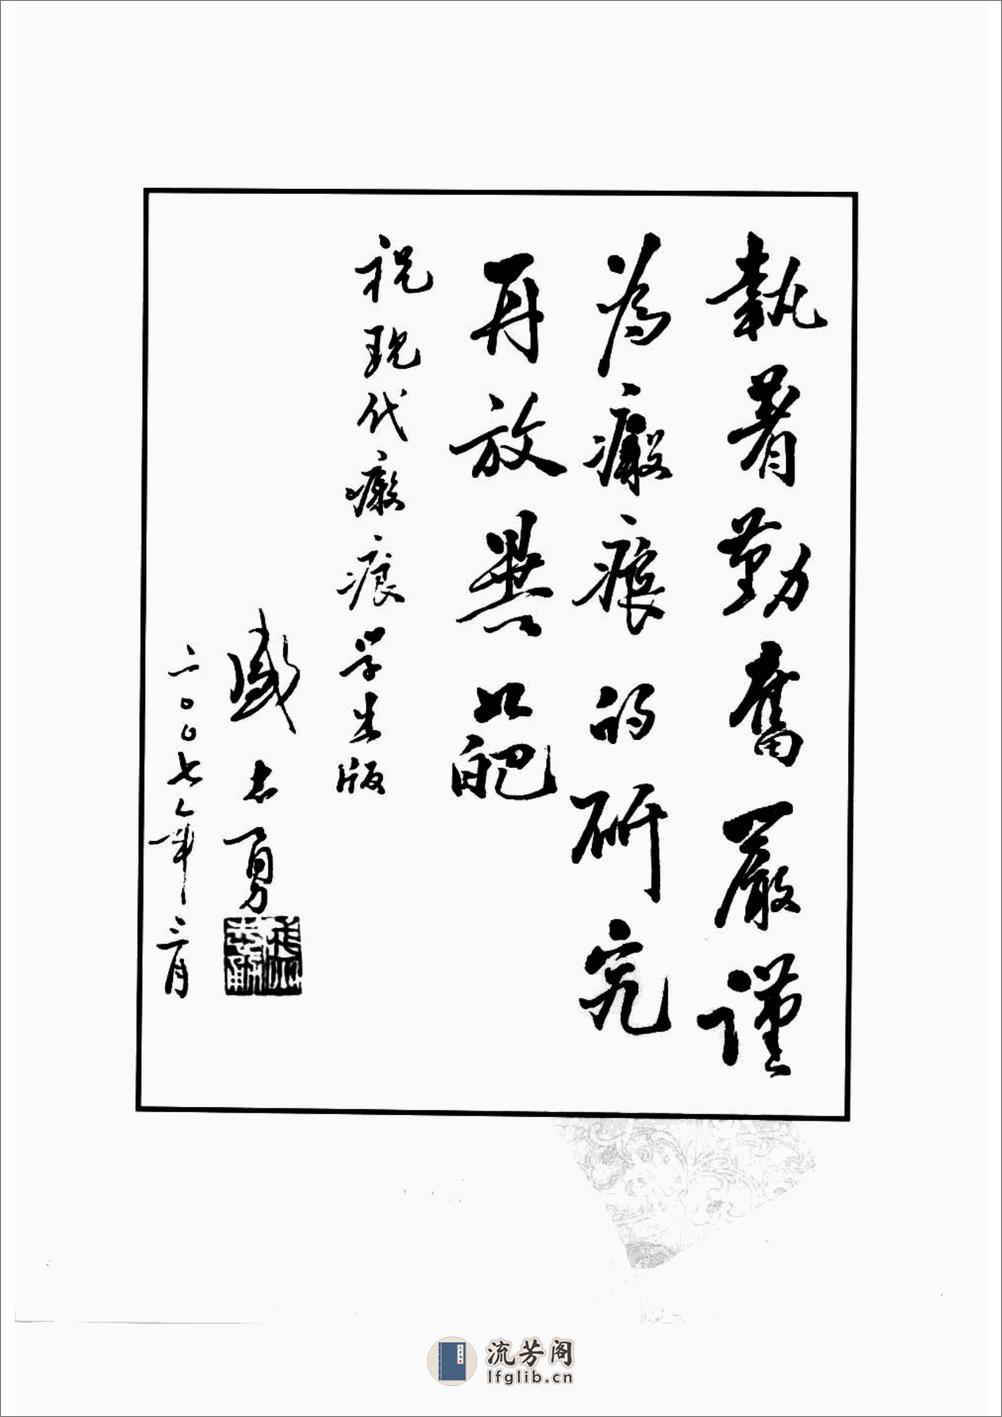 執著勤奮嚴謹
為瘢痕的研究
再放異葩
祝現代瘢痕学出版
盛志勇
二〇〇七年三月
流芳阁
lfglib.cn